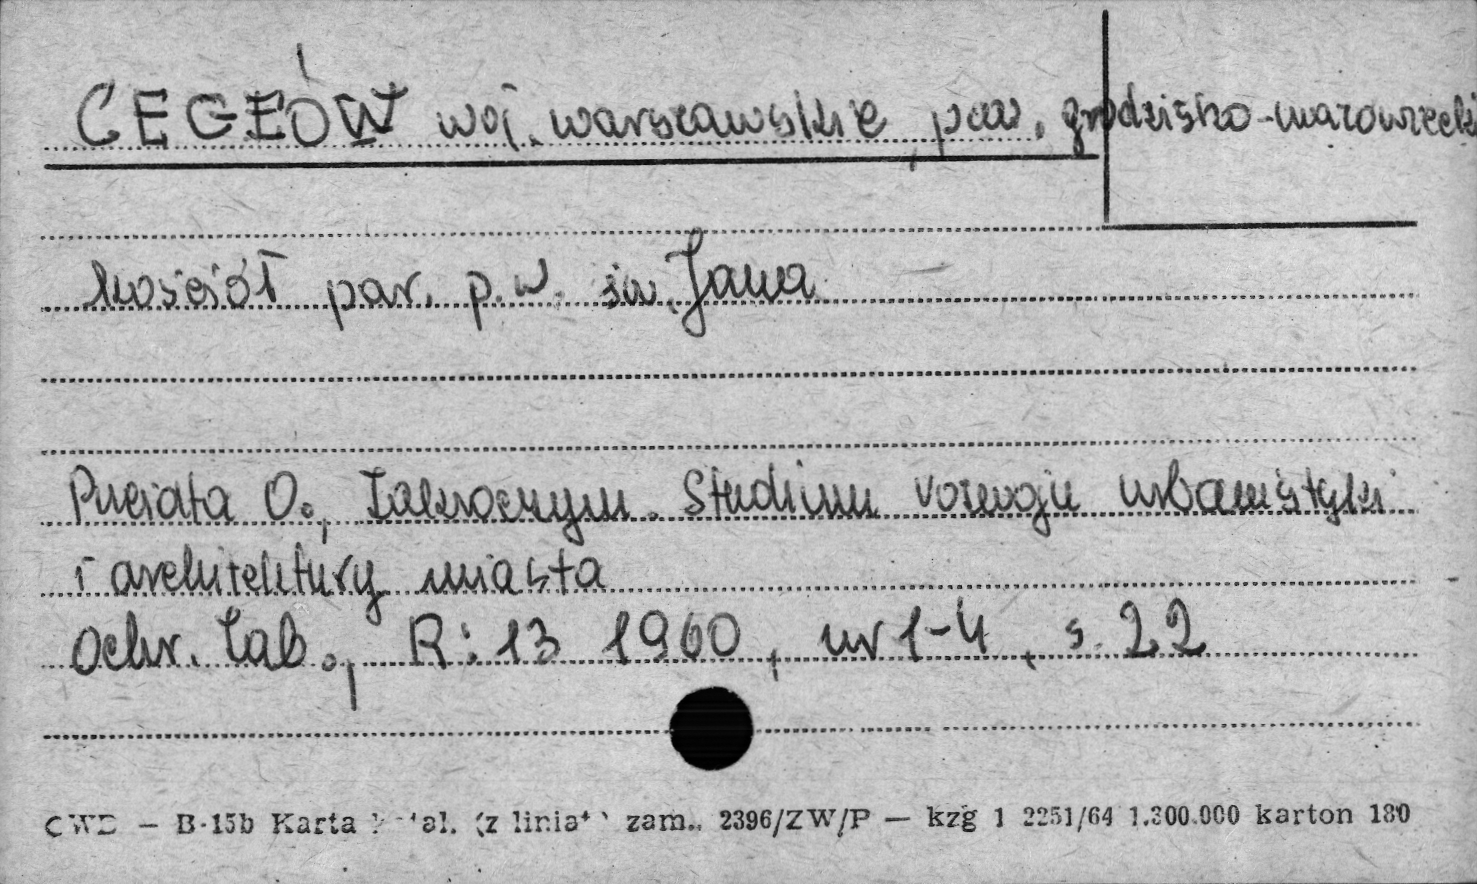 CEGŁÓW woj. warszawskie, pow. grodzisko-mazowiecki
kościół par. p.w. św. Jana
Puciata O., Zakroczym. Studium rozwoju urbanistyki
i architektury miasta
Ochr. Zab., R: 13 1960, nr 1-4, s. 22
CWD — B-15b Karta (z linia zam. 2396/ZW/P — kzg 1 2251/64 1.300.000 karton 180